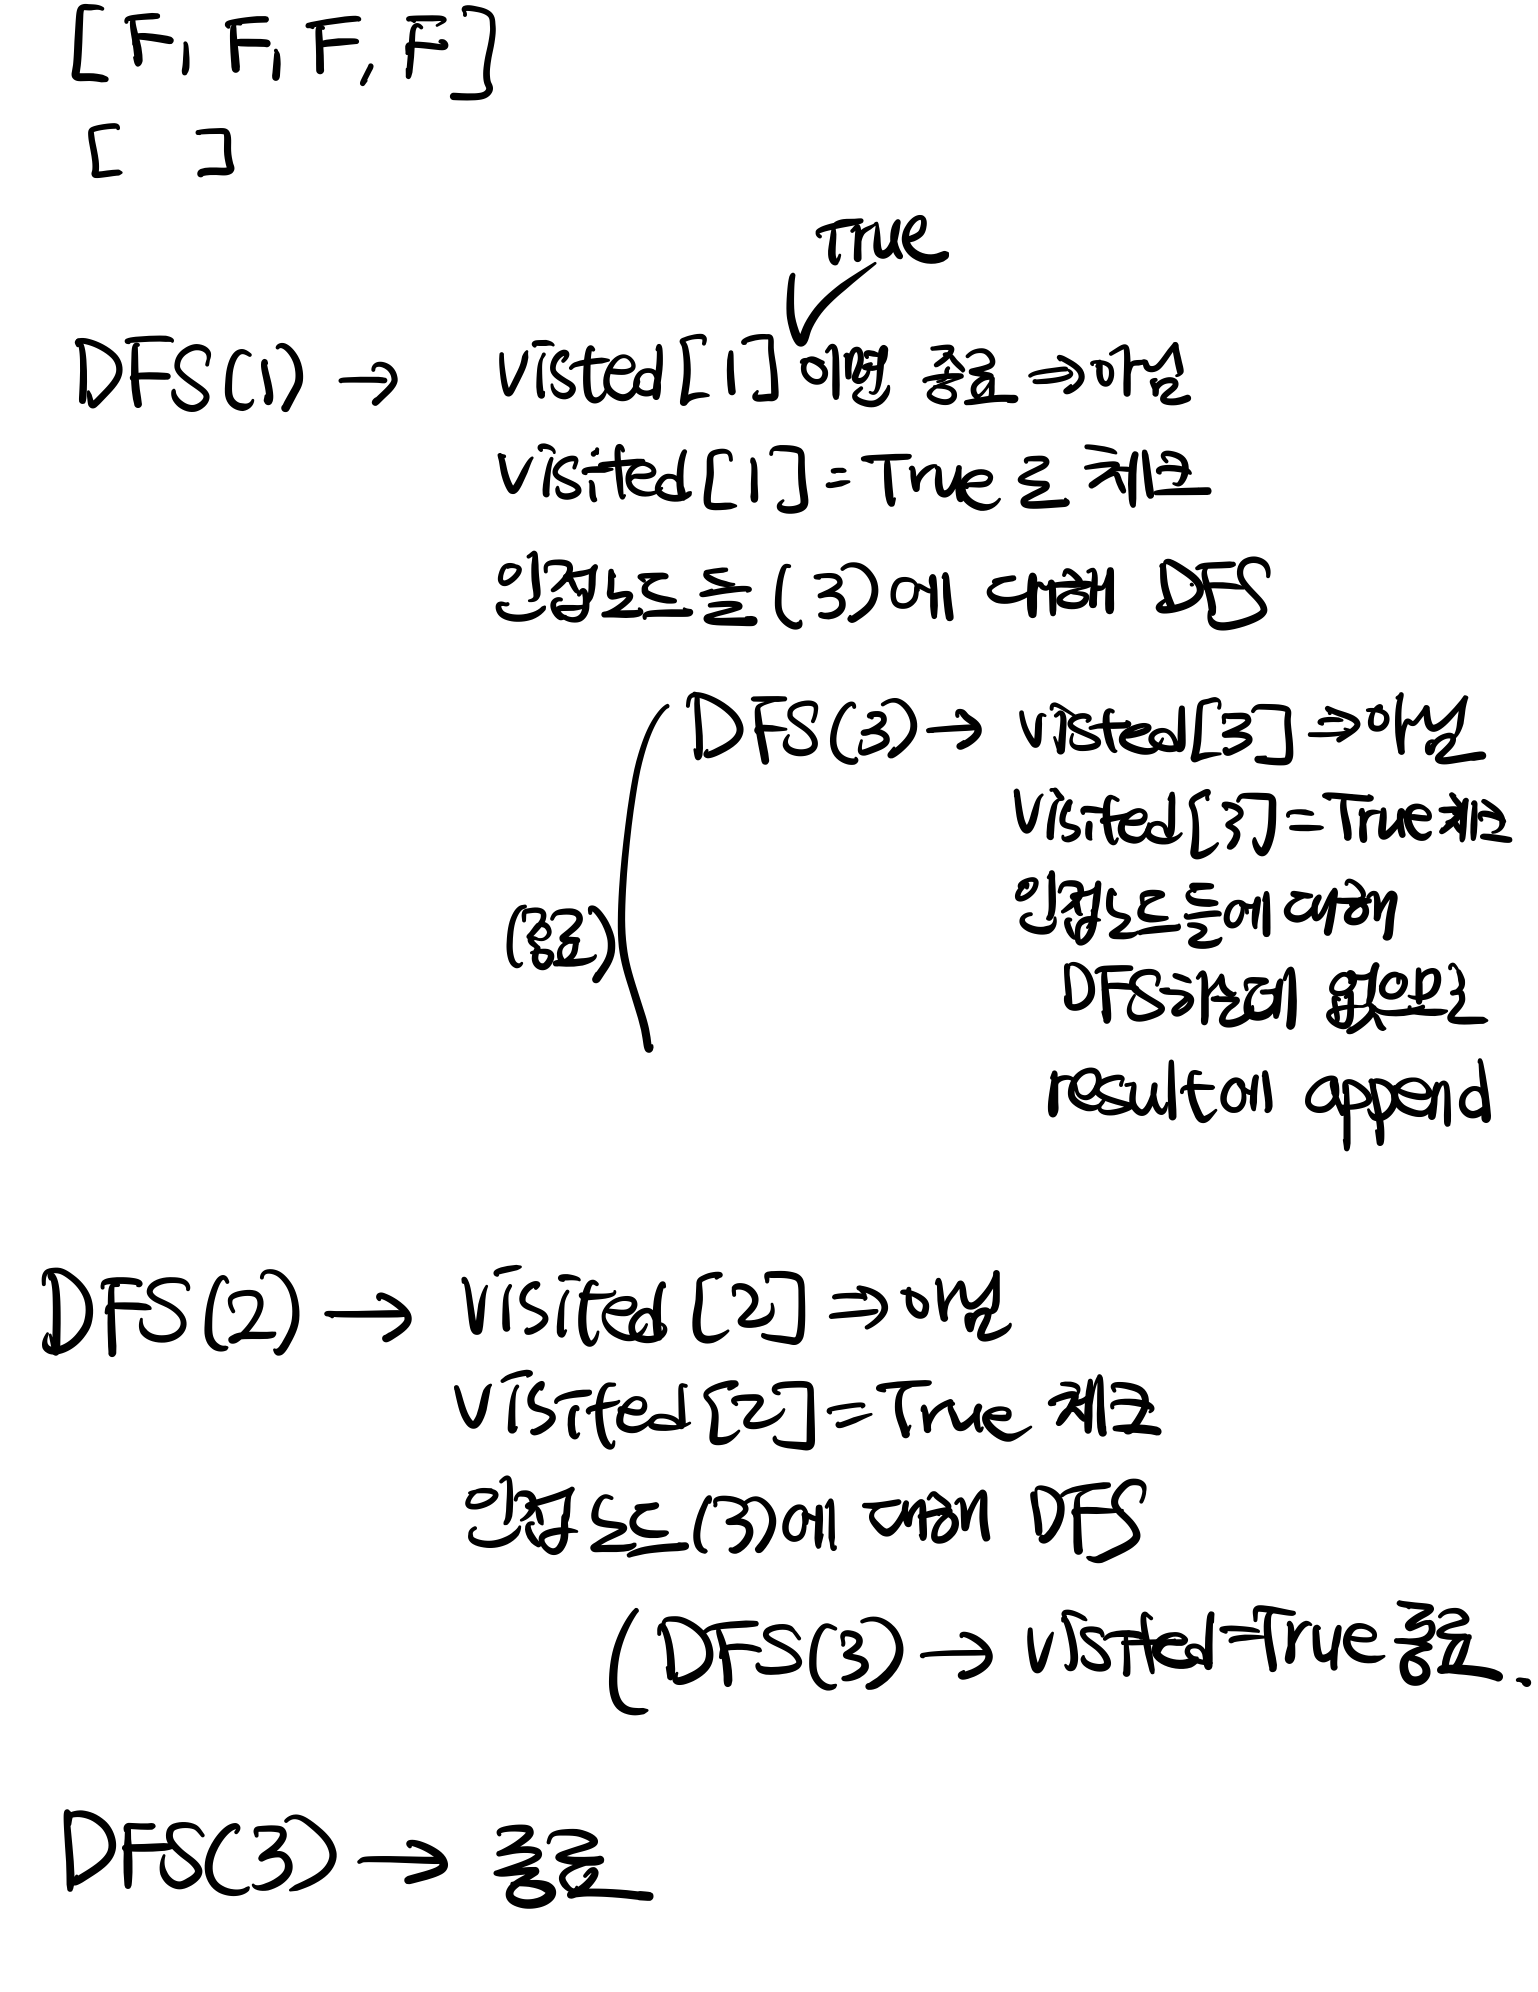 [F, F, F, F]
[ ]
True
DFS(1) → visted[1] 이면 종료 ⇒ 아님
visited[1] = True 로 체크
인접노드들(3)에 대해 DFS
DFS(3) → visted[3] ⇒ 아님
visited[3] = True 체크
인접노드들에 대해
(종료)
DFS하는데 없으므로
result에 append
DFS(2) → visited[2] ⇒ 아님
visited[2] = True 체크
인접노드(3)에 대해 DFS
(DFS(3) → visted=True 종료.
DFS(3) → 종료